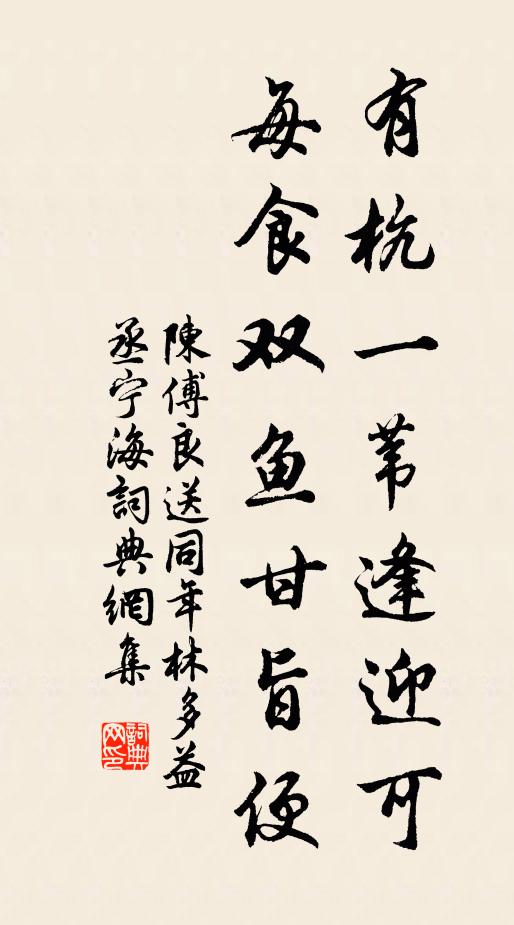 有杭一苇逢迎可
每食双鱼甘旨便
陳傅良送同年林多益
丞宁海詞典網集
詞典网印